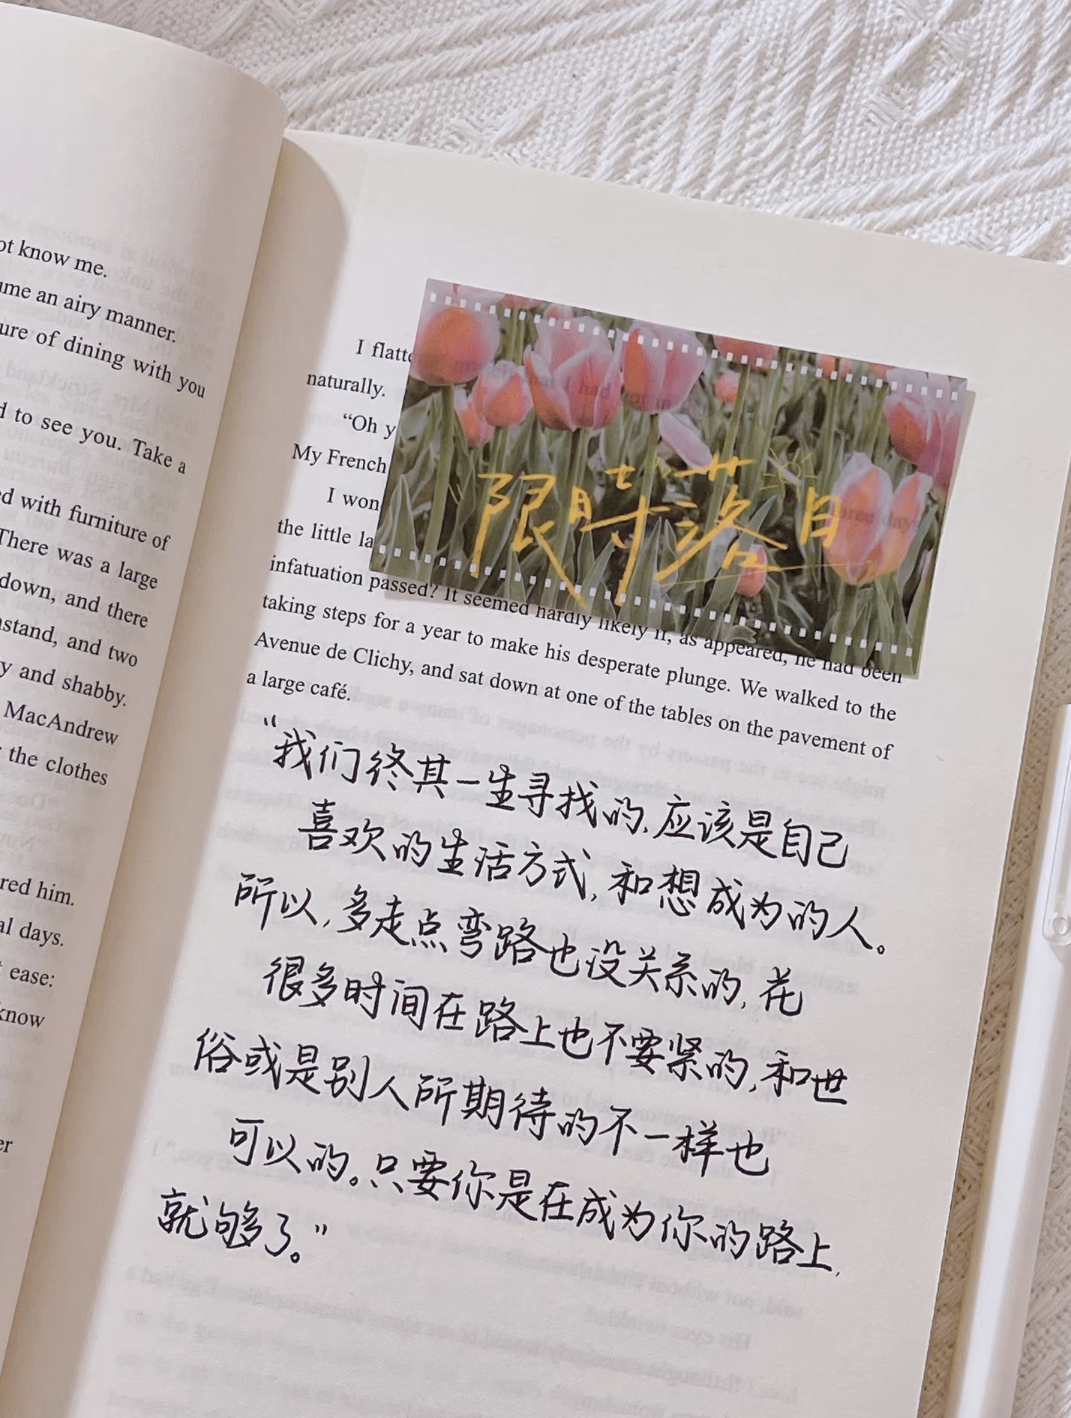 ot know me.
ume an airy manner.
ure of dining with you
d to see you. Take a
ed with furniture of
There was a large
down, and there
nstand, and two
y and shabby.
MacAndrew
the clothes
red him.
al days.
ease:
know
er
I flatte
naturally.
“Oh y
My French
I won
the little la
infatuation passed? It seemed hardly likely if, as appeared, he had been
taking steps for a year to make his desperate plunge. We walked to the
Avenue de Clichy, and sat down at one of the tables on the pavement of
a large café.
限时落日
“我们终其一生寻找的,应该是自己
喜欢的生活方式,和想成为的人。
所以,多走点弯路也没关系的,花
很多时间在路上也不要紧的,和世
俗或是别人所期待的不一样也
可以的。只要你是在成为你的路上,
就够了。”